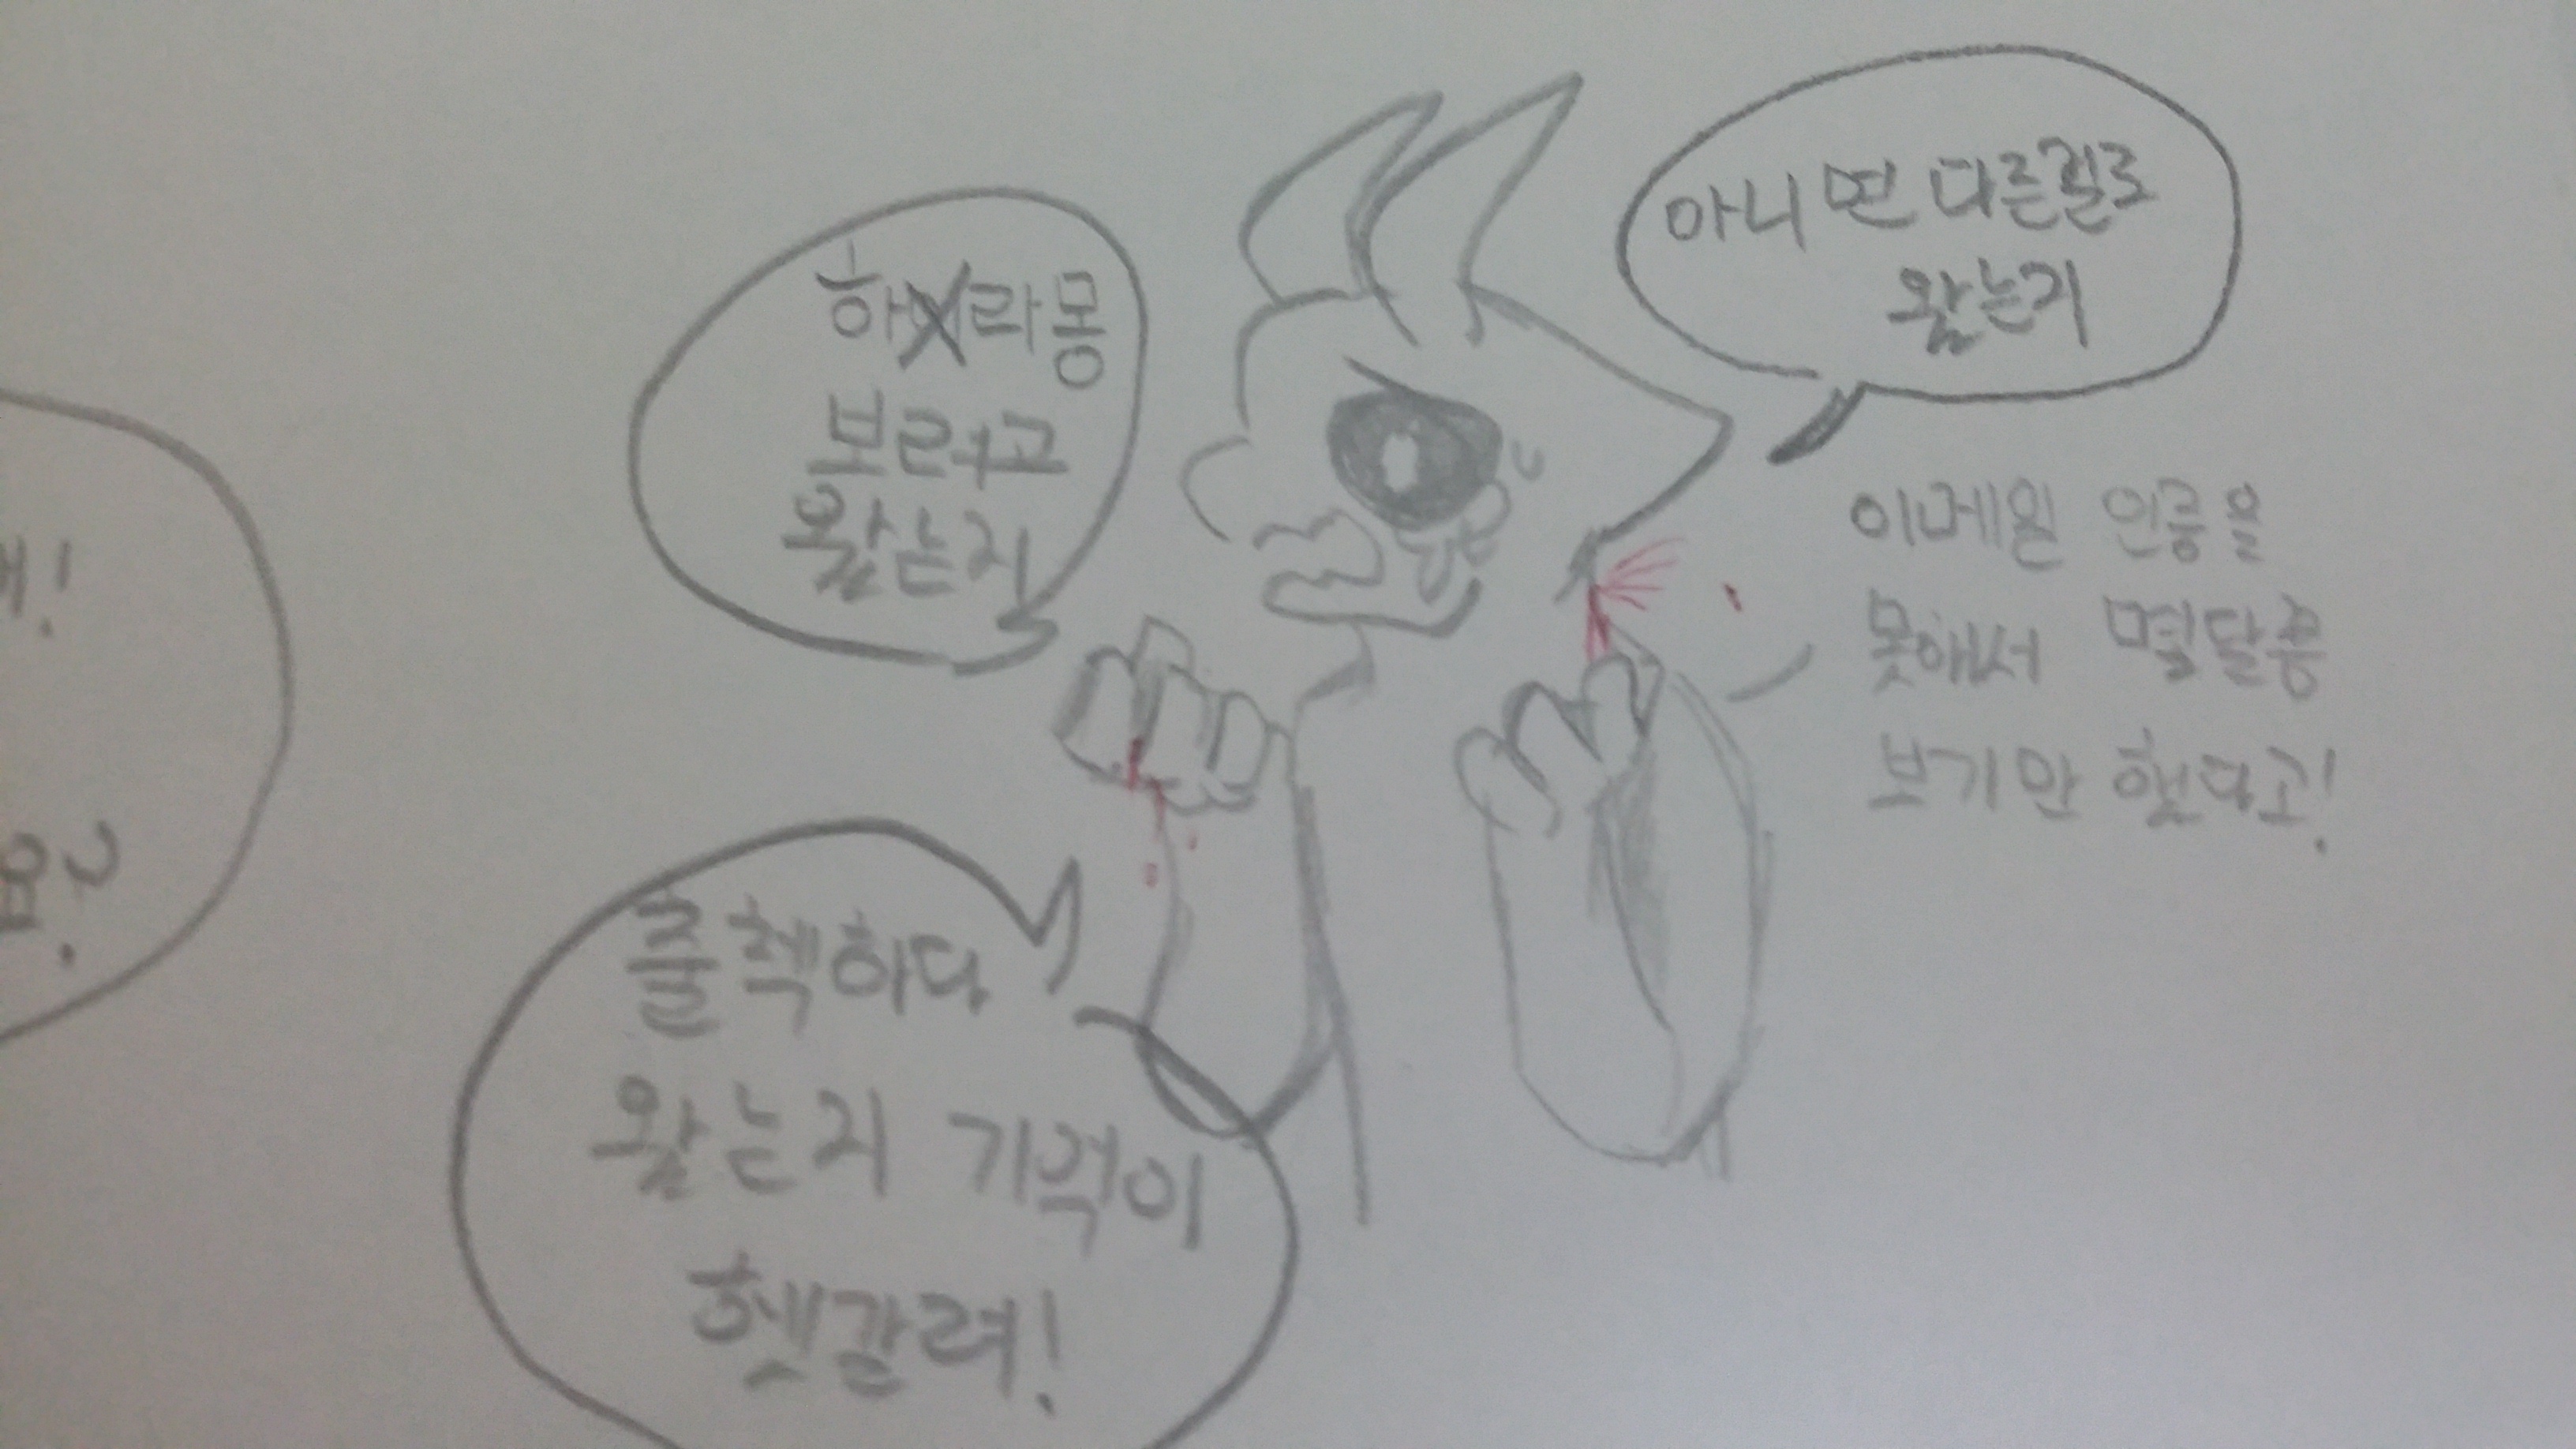 하라몽
보려고
왔는지
아니면 다른길로
왔는지
이메일 인증을
못해서 몇달쯤
보기만 했다고!
출첵하다
왔는지 기억이
헷갈려!